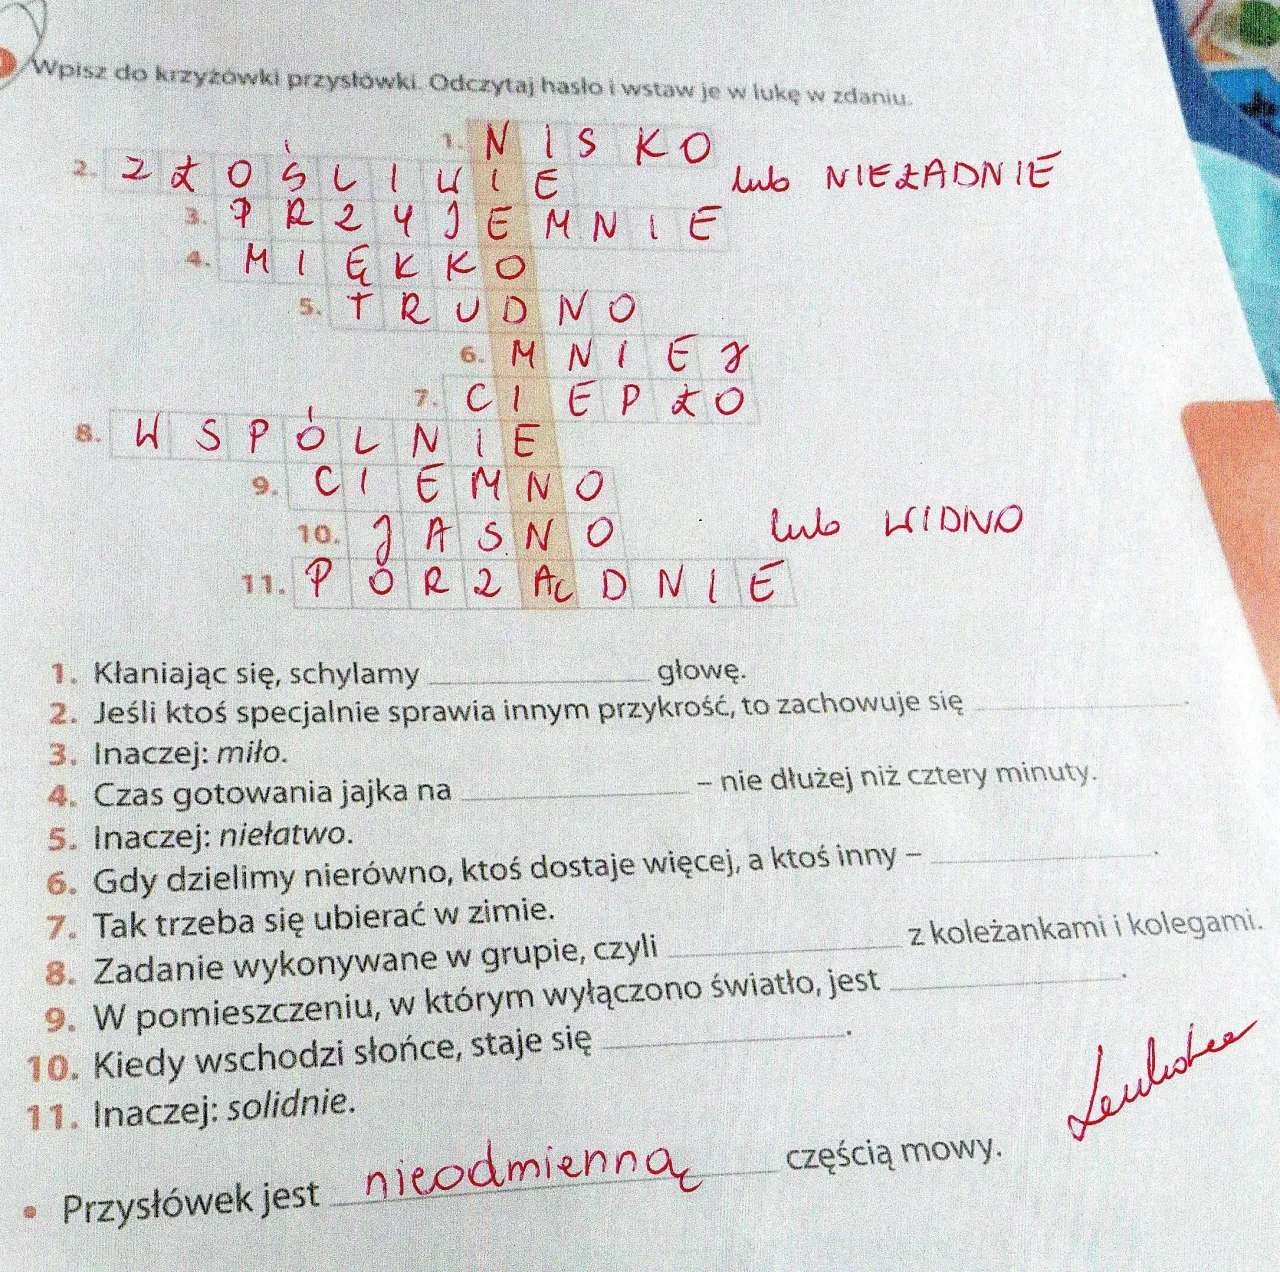 Wpisz do krzyżówki przysłówki. Odczytaj hasło i wstaw je w lukę w zdaniu.
1. NISKO
2. ZŁOŚLIWIE lub NIEŁADNIE
3. PRZYJEMNIE
4. MIĘKKO
5. TRUDNO
6. MNIEJ
7. CIEPŁO
8. WSPÓLNIE
9. CIEMNO
10. JASNO lub WIDNO
11. PORZĄDNIE
1. Kłaniając się, schylamy ______ głowę.
2. Jeśli ktoś specjalnie sprawia innym przykrość, to zachowuje się ______.
3. Inaczej: miło.
4. Czas gotowania jajka na ______ – nie dłużej niż cztery minuty.
5. Inaczej: niełatwo.
6. Gdy dzielimy nierówno, ktoś dostaje więcej, a ktoś inny – ______.
7. Tak trzeba się ubierać w zimie.
8. Zadanie wykonywane w grupie, czyli ______ z koleżankami i kolegami.
9. W pomieszczeniu, w którym wyłączono światło, jest ______.
10. Kiedy wschodzi słońce, staje się ______.
11. Inaczej: solidnie.
• Przysłówek jest nieodmienną częścią mowy.